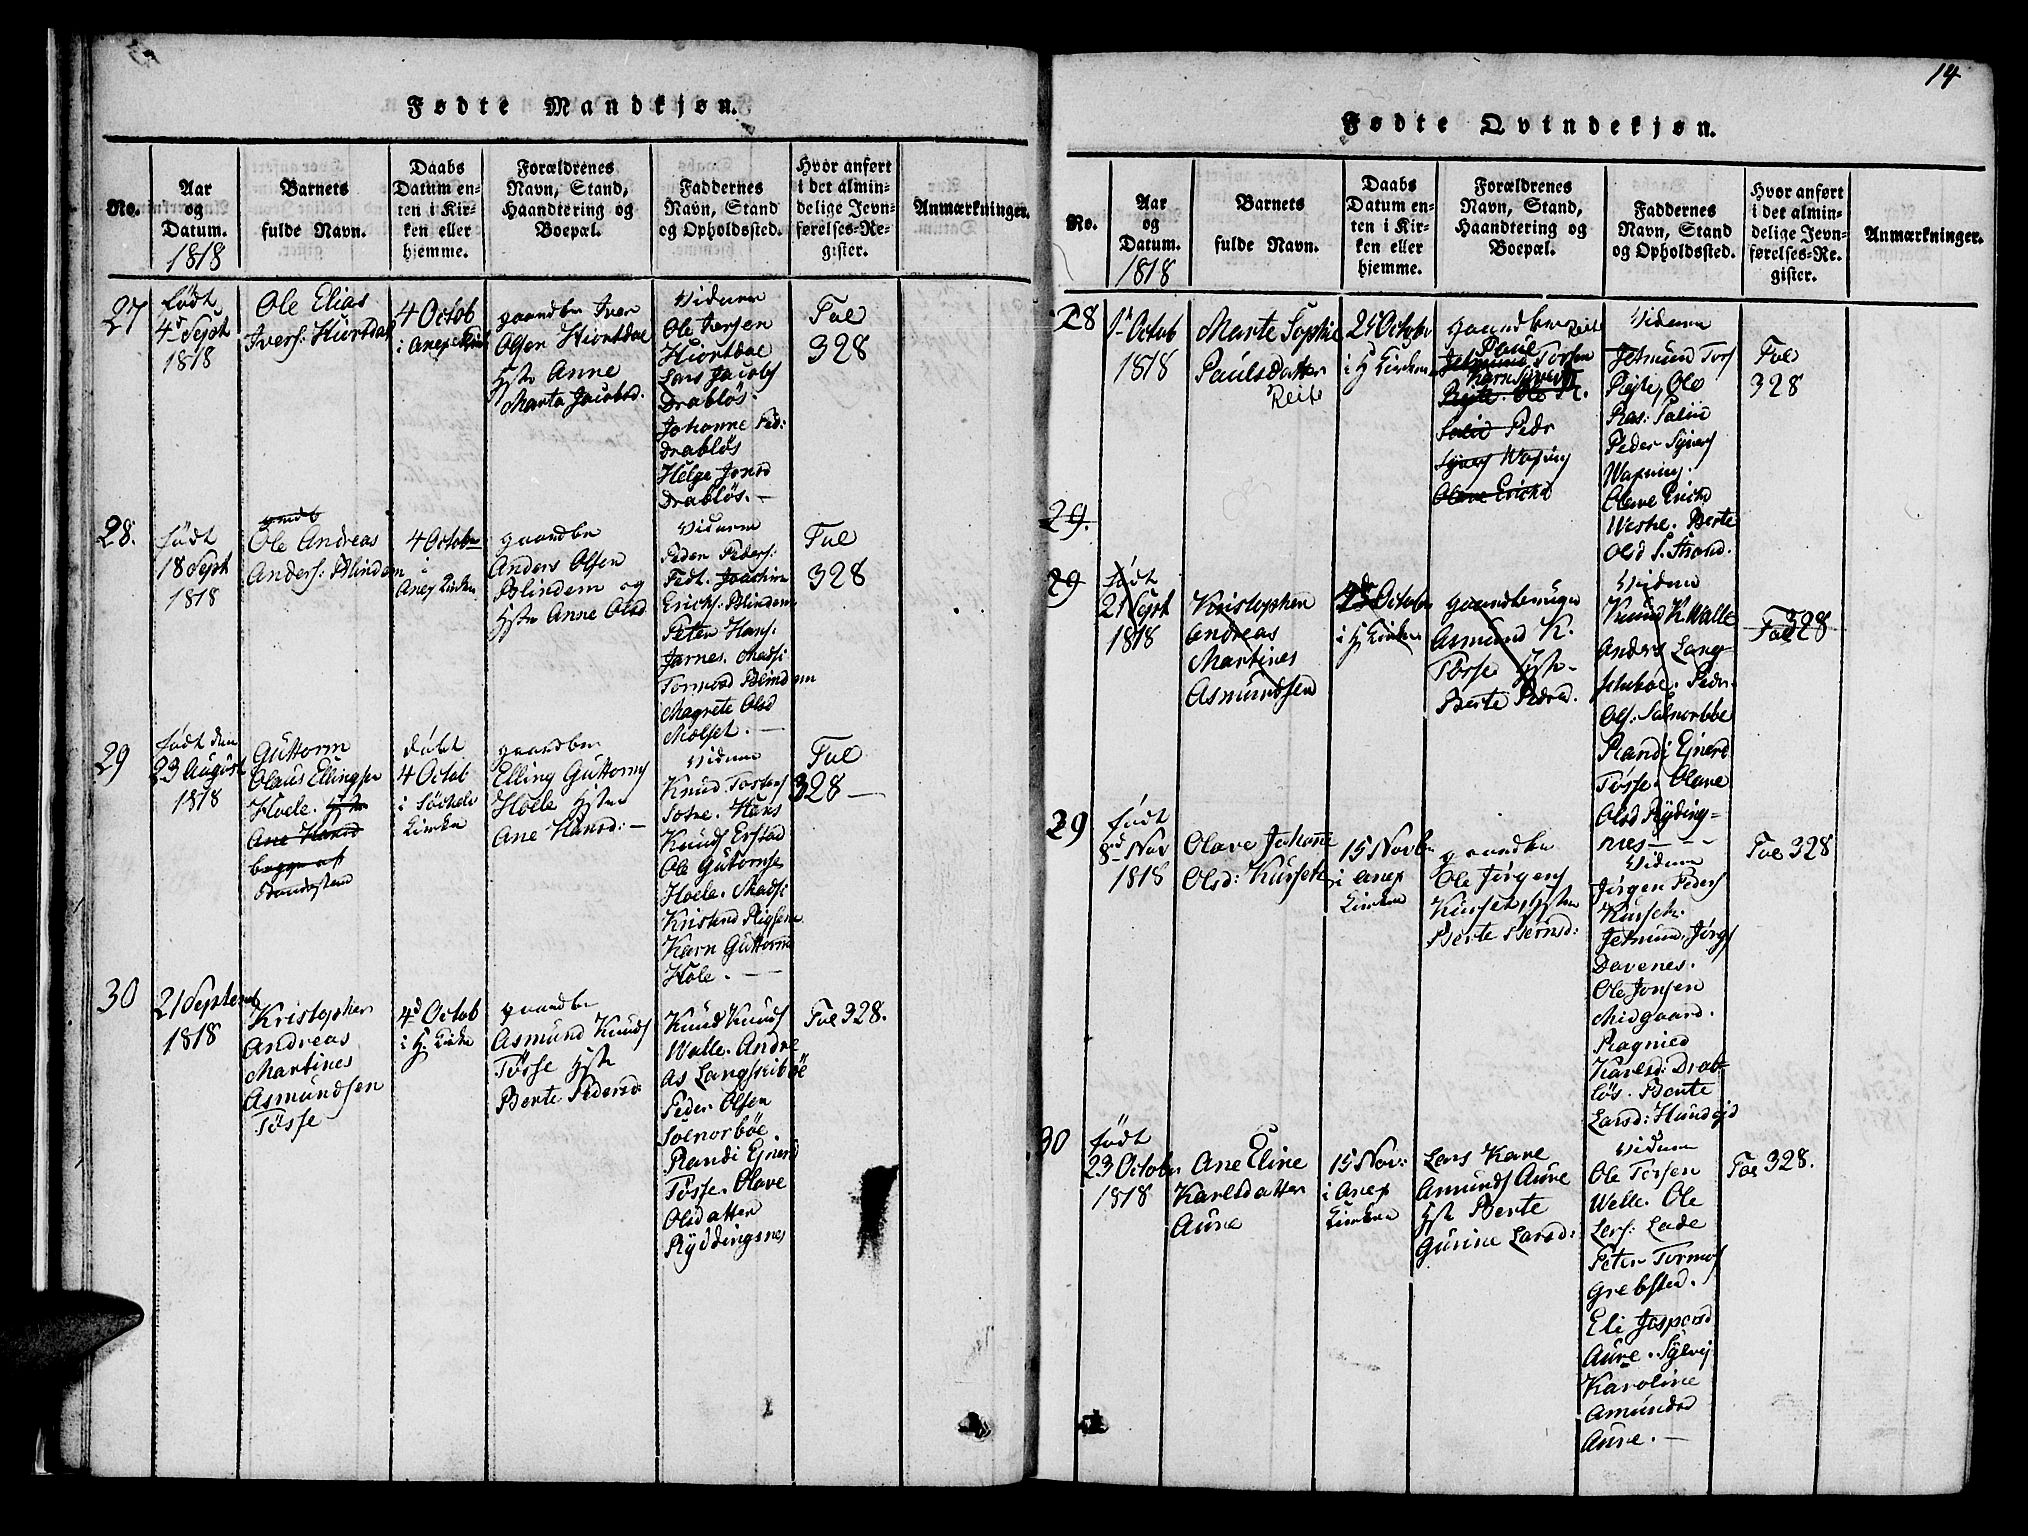 Fødte Mandkjøn.
No.
Aar
og
Datum.
1818
Barnets
fulde Navn.
Daabs
Datum en-
ten i Kir-
ken eller
hjemme.
Forældrenes
Navn, Stand,
Haandtering og
Boepæl.
Faddernes
Navn, Stand
og Opholdssted.
Hvor anført
i det almin-
delige Jevn-
førelses-Re-
gister.
Anmærkninger.
27
født
4d Sept
1818
Ole Elias
Ivers: Hiortdal
4 Octob
i Anex Kirk
gaardbr Iver
Olsen Hiortdal
Hstr Anne
Marta Jacobsd.
Vidner
Ole Iversen
Hiortdal
Lars Jacobs
Drabløs.
Johanne Ped:
Drabløs
Helge Jonsd
Drabløs. —
Fol
328
28.
født
18 Sept
1818
Ole Andreas
Anders: Blindem
4 Octobr
i
Anex Kirken
gaardbr
Anders Olsen
Blindem og
Hstr Anne Olsd
Vidner
Peder Peders:
Fedt. Joachim
Erichs: Blindem
Peter Hans:
Jarnes. Mads:
Tormod Blindem
Magrete Olsd
Molset. —
Fol
328
29
født den
23 August
1818
Guttorm
Olaus Ellingsen
Hoele. Hstr
Ane Hansd
begge af
Bondestan
døbt
4 Octob
i Søcheli
Kirken
gaardbr
Elling Guttorms
Hoele Hstru
Ane Hansd: —
Vidner
Knud Tostens
Hans
Knuds Erstad
Ole Gutormse
Hoele. Mads:
Karn Guttorm
Hole. —
Fol
328 —
30
21 September
1818
Kristopher
Andreas
Martines
Asmundsen
Tøsse
4d Octob
i H: Kirke
gaardbr
Asmund Knuds
Tøsse Hstr
Berte Pedersd:
Knud Knuds
Walle. Andre
as Langsetbøe
Peder Olsen
Solnorbøe
Randi Ejnersd
Tøsse. Olave
Olsdatter
Ryddingsnes
Fol 328.
14
Fødte Qvindekjøn.
No.
Aar
og
Datum.
1818
Barnets
fulde Navn.
Daabs
Datum en-
ten i Kir-
ken eller
hjemme.
Forældrenes
Navn, Stand,
Haandtering og
Boepæl.
Faddernes
Navn, Stand
og Opholdssted.
Hvor anført
i det almin-
delige Jevn-
førelses-Re-
gister.
Anmærkninger.
28
1d Octob
1818
Marte Sophie
Paulsdatter
Reite
25 Octobr
i H Kirken
gaardbr Reite
Poul
Jetmund Torsen
Rejte. Ole R.
Peder
Syvers Wapins
Olave Erichd
Vidner
Jetmund Tors
Rejte, Ole
Ras: Salie
Peder Syvers
Waping.
Olave Erichd
Weshe. Berte
Olsd S. Strand.
Fol
328
29.
29
født
21 Sept
1818
Kristopher
Andreas
Martines
Asmundsen
25 Octobr
i H Kirken
gaardbrmand
Asmund K.
Tøsse Hstr
Berte Pedrsd.
Vidner
Knud K. Walle
Anders Lang-
setbøe. Peder
Ols: Solnorbøe
Randi Ejnersd
Tøsse. Olave
Olsd Ryding-
nes — — —
Fol 328
29
født
8d Nov
1818
Olave Johanne
Olsd: Kurset
15 Novbr
i Anex
Kirken
gaardbr
Ole Jørgens
Kurset, Hstru
Berte Bernsd:
Vidner
Jørgen Peders
Kurset.
Jetmund Jørgs
Davenes.
Ole Jonsen
Midgaard.
Ragnied
Karlsd: Drab-
løs. Berte
Larsd: Hundejd
Fol 328
30
født
23 Octobr
1818
Ane Eline
Karlsdatter
Aure
15 Nov:
i Anex
Kirken
Lars Kare
Amunds Aure
Hstr Berte
Gurine Larsd:
Vidner
Ole Torsen
Welle. Ole
Lars: Lade
Peter Tormos
Grebsted.
Eli Jespersd
Aure. Sylvej
Karoline
Amundsd
Aure. —
Fol 328.